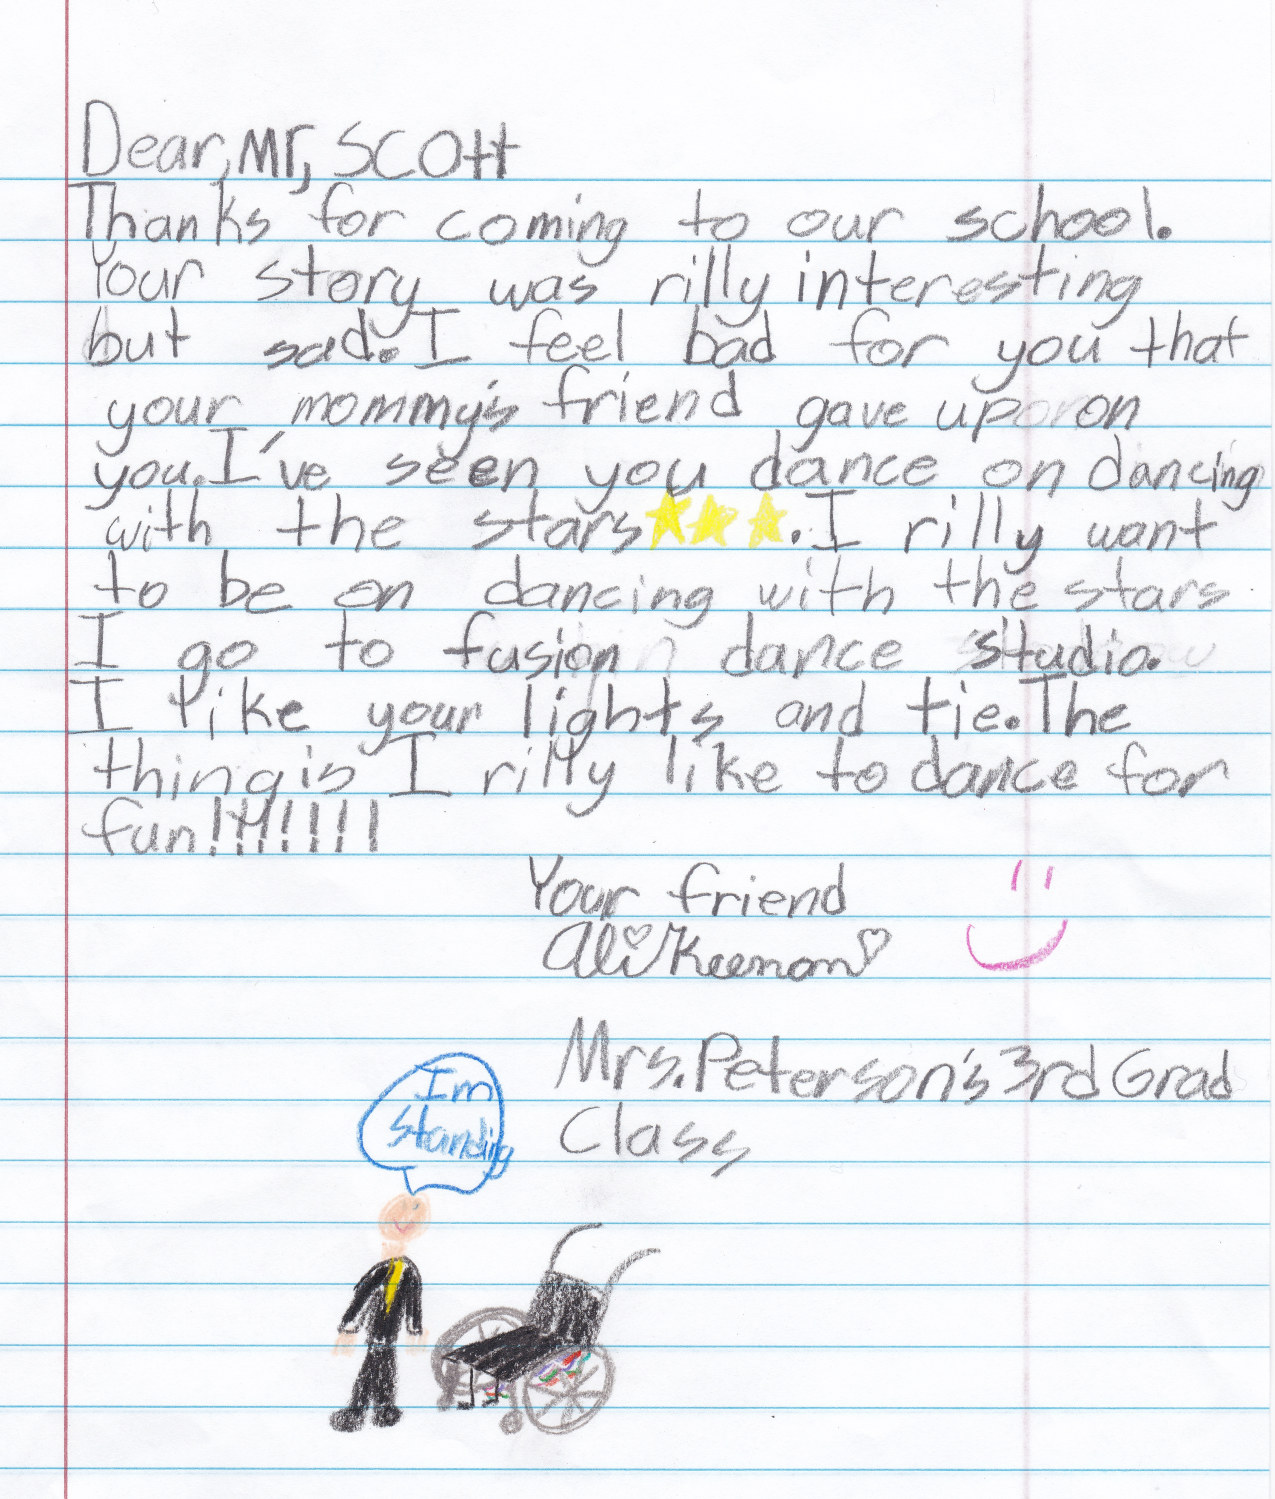 Dear, Mr, SCOTT
Thanks for coming to our school.
Your story was rilly interesting
but sad. I feel bad for you that
your mommy's friend gave up on
you. I've seen you dance on dancing
with the stars. I rilly want
to be on dancing with the stars
I go to fusion dance studio.
I like your lights and tie. The
thing is I rilly like to dance for
fun!!!!!!!!
Your friend
Ali Keenan
Mrs. Peterson's 3rd Grad
Class
Im
standing